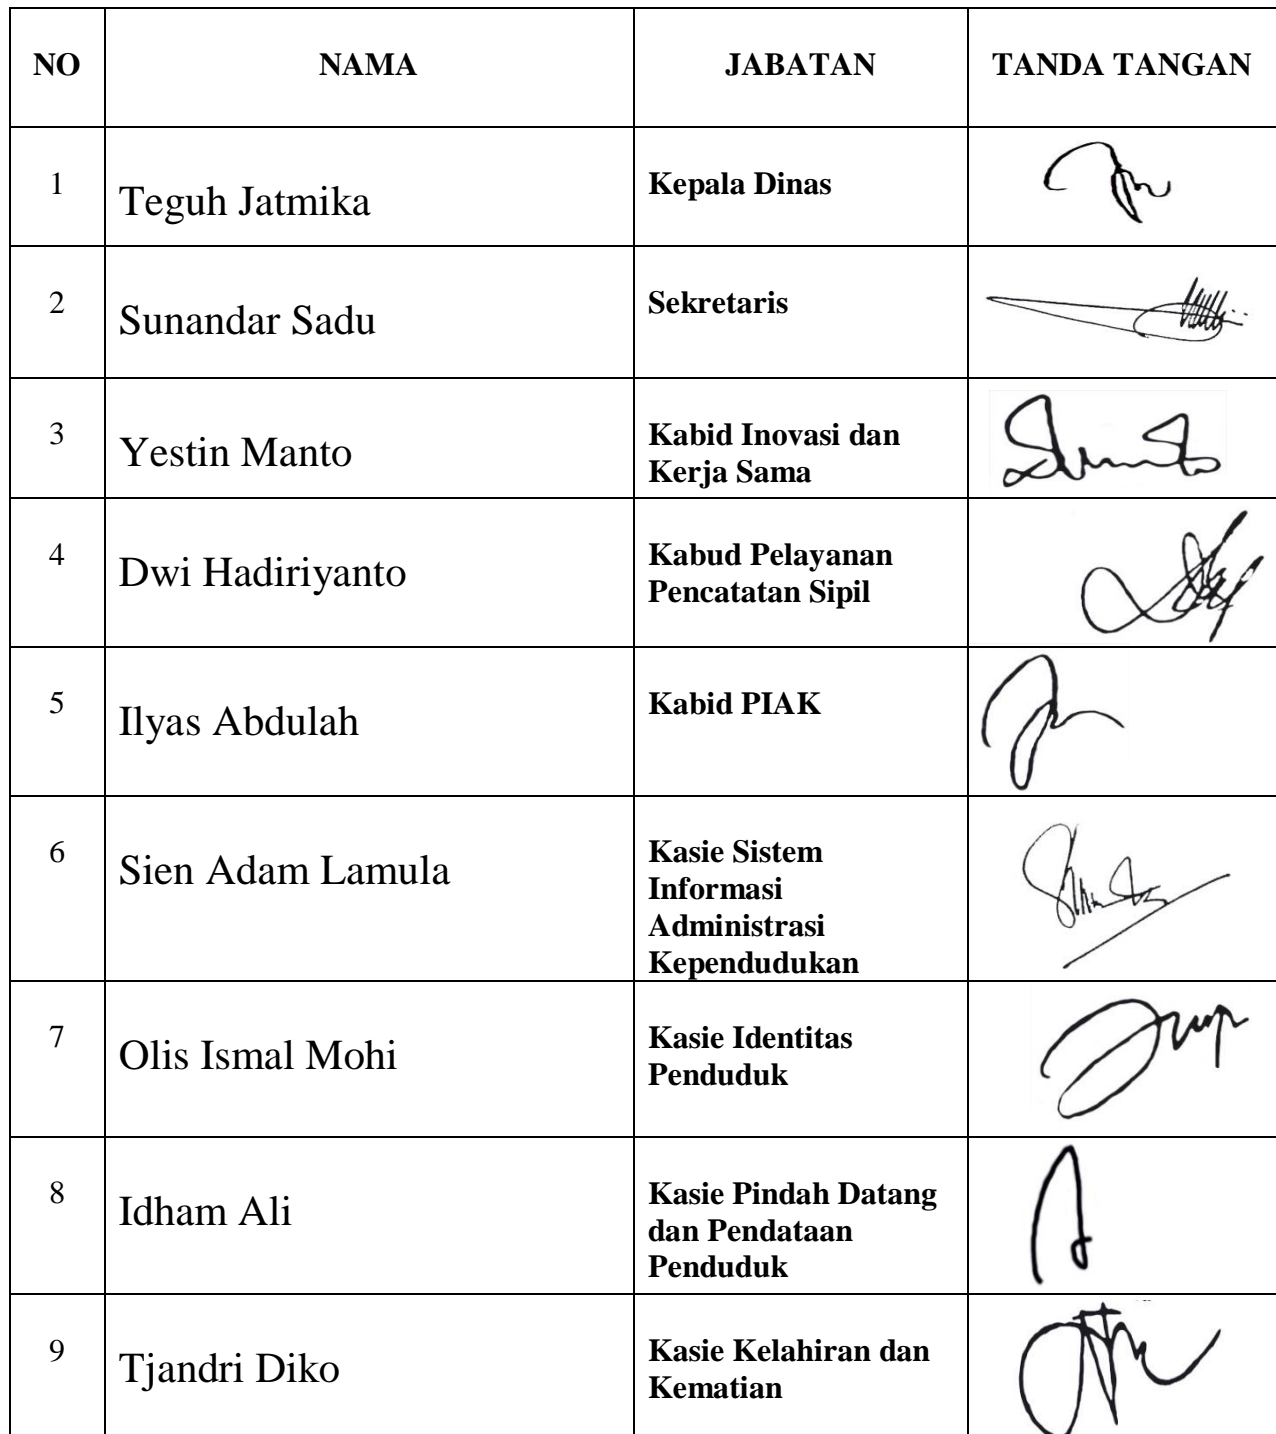 NO NAMA JABATAN TANDA TANGAN
1 Teguh Jatmika Kepala Dinas
2 Sunandar Sadu Sekretaris
3 Yestin Manto Kabid Inovasi dan
Kerja Sama
4 Dwi Hadiriyanto Kabud Pelayanan
Pencatatan Sipil
5 Ilyas Abdulah Kabid PIAK
6 Sien Adam Lamula Kasie Sistem
Informasi
Administrasi
Kependudukan
7 Olis Ismal Mohi Kasie Identitas
Penduduk
8 Idham Ali Kasie Pindah Datang
dan Pendataan
Penduduk
9 Tjandri Diko Kasie Kelahiran dan
Kematian